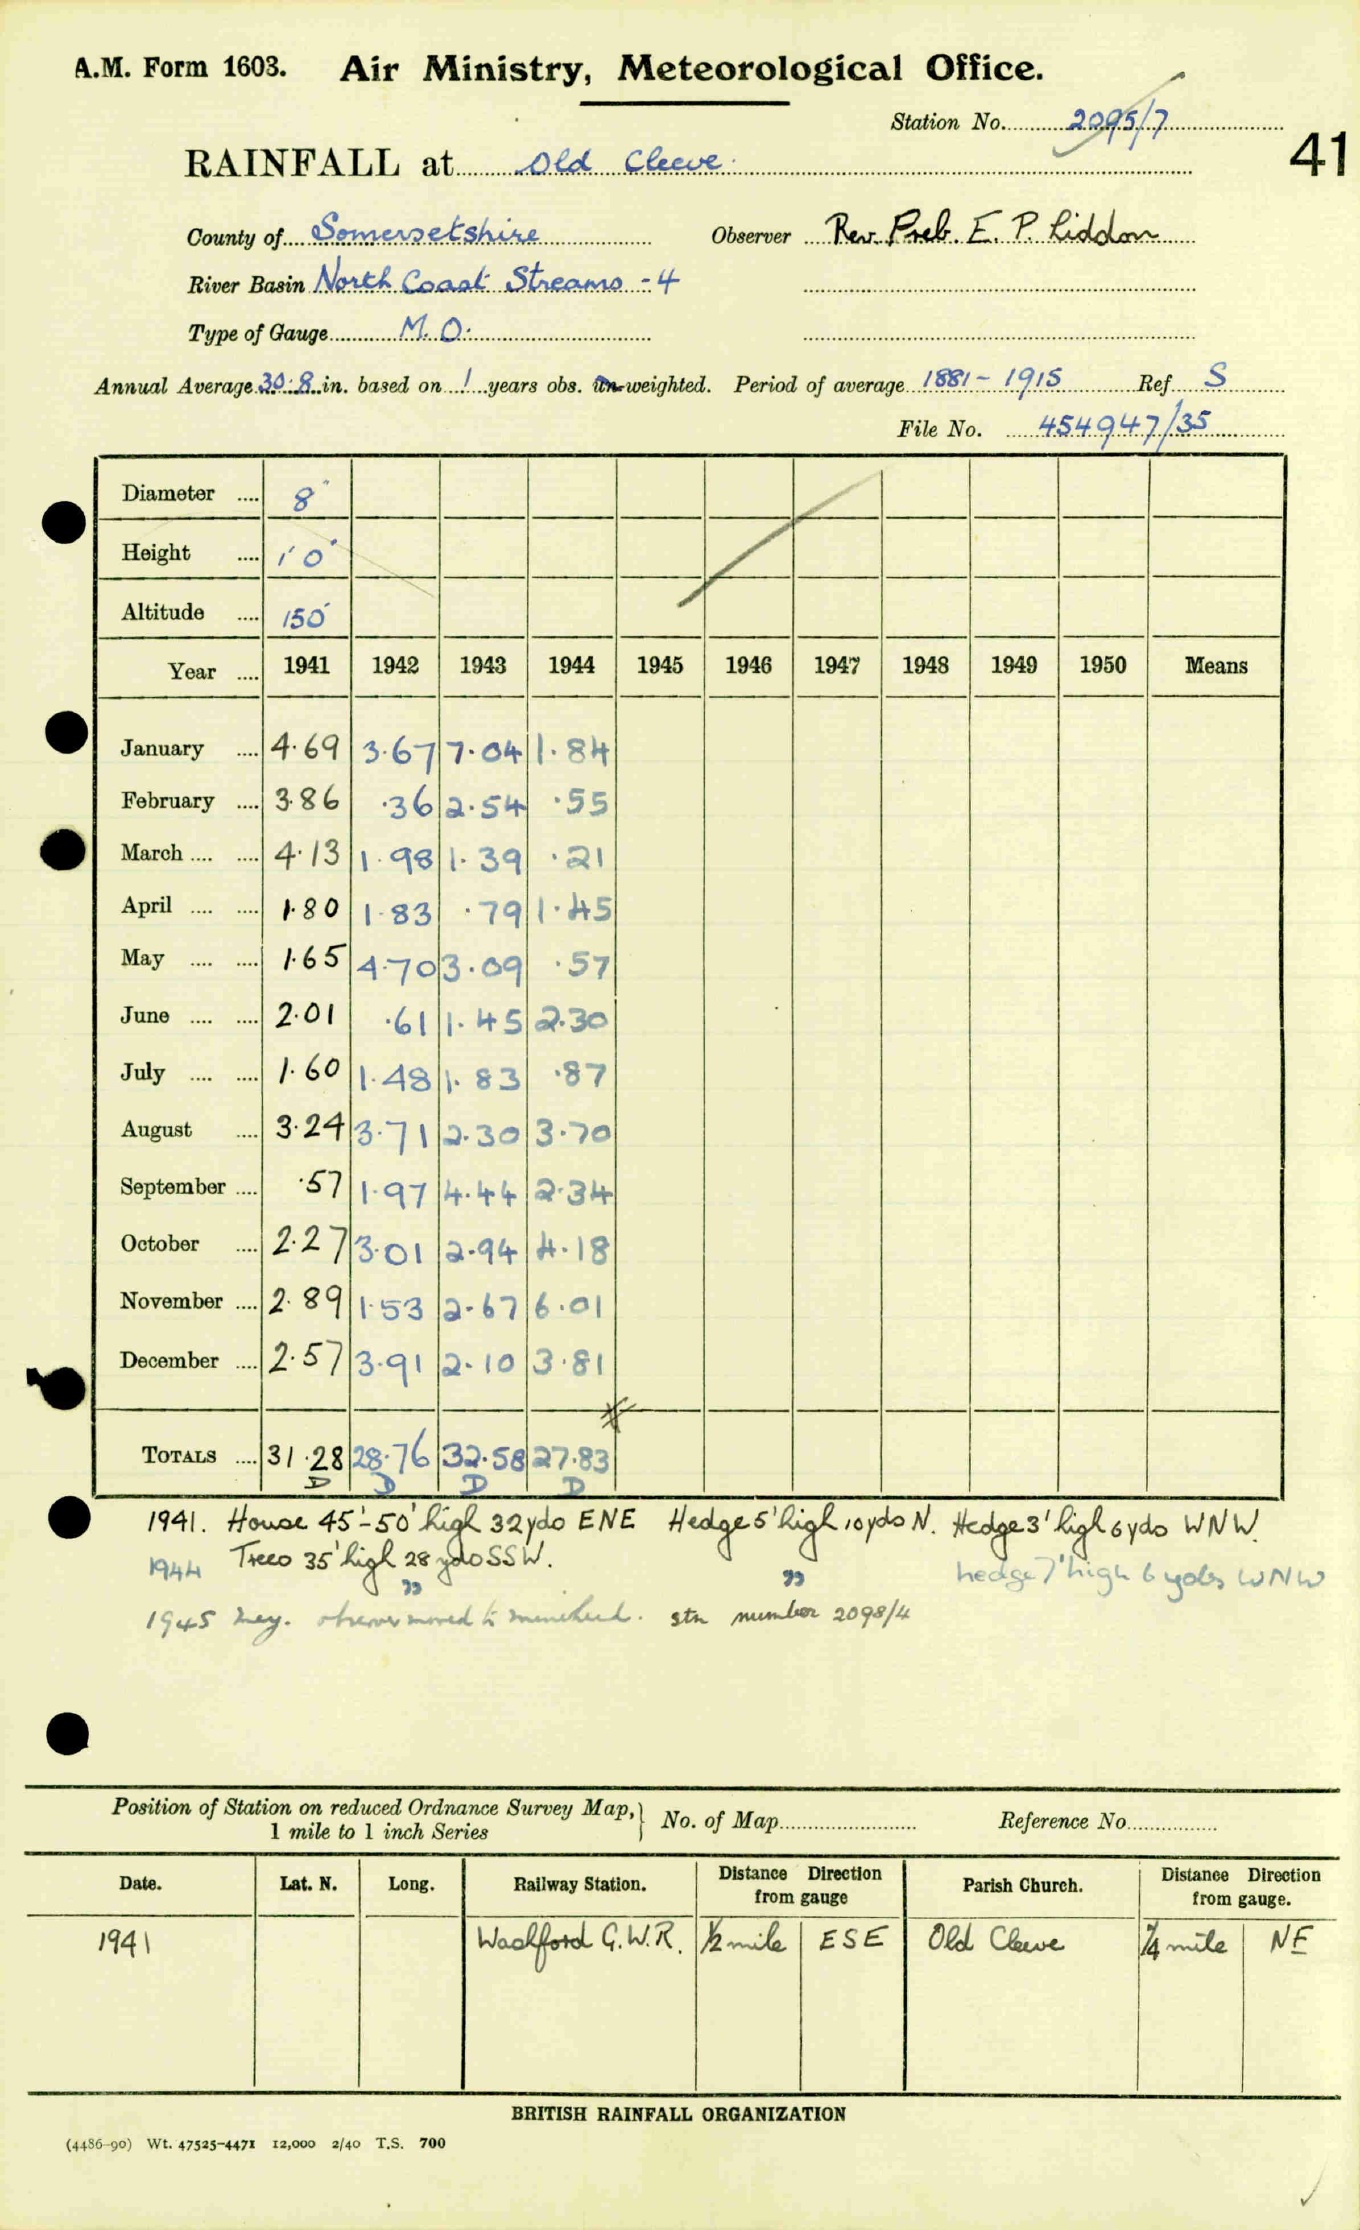 A.M. Form 1603. Air Ministry, Meteorological Office.
Station No. 2095/7
41
RAINFALL at Old Cleeve.
County of Somersetshire Observer Rev. Preb. E. P. Liddon
River Basin North Coast Streams - 4
Type of Gauge M.O.
Annual Average 30.8 in. based on 1 years obs. un-weighted. Period of average 1881 - 1915 Ref S
File No. 454947/35
Diameter .... 8"
Height .... 1' 0"
Altitude .... 150'
Year .... 1941 1942 1943 1944 1945 1946 1947 1948 1949 1950 Means
January .... 4.69 3.67 7.04 1.84
February .... 3.86 .36 2.54 .55
March .... .... 4.13 1.98 1.39 .21
April .... .... 1.80 1.83 .79 1.45
May .... .... 1.65 4.70 3.09 .57
June .... .... 2.01 .61 1.45 2.30
July .... .... 1.60 1.48 1.83 .87
August .... 3.24 3.71 2.30 3.70
September .... .57 1.97 4.44 2.34
October .... 2.27 3.01 2.94 4.18
November .... 2.89 1.53 2.67 6.01
December .... 2.57 3.91 2.10 3.81
TOTALS .... 31.28 28.76 32.58 27.83
D D D D
1941. House 45'-50' high 32 yds ENE Hedge 5' high 10 yds N. Hedge 3' high 6 yds WNW.
Trees 35' high 28 yds SSW.
1944 " " hedge 7' high 6 yds WNW
1945 May. observer moved to Minehead. stn number 2098/4
Position of Station on reduced Ordnance Survey Map, } No. of Map Reference No.
1 mile to 1 inch Series
Date. Lat. N. Long. Railway Station. Distance Direction from gauge Parish Church. Distance Direction from gauge.
1941 Washford G.W.R. ½ mile ESE Old Cleeve ¼ mile NE
BRITISH RAINFALL ORGANIZATION
(4486-90) Wt. 47525-4471 12,000 2/40 T.S. 700